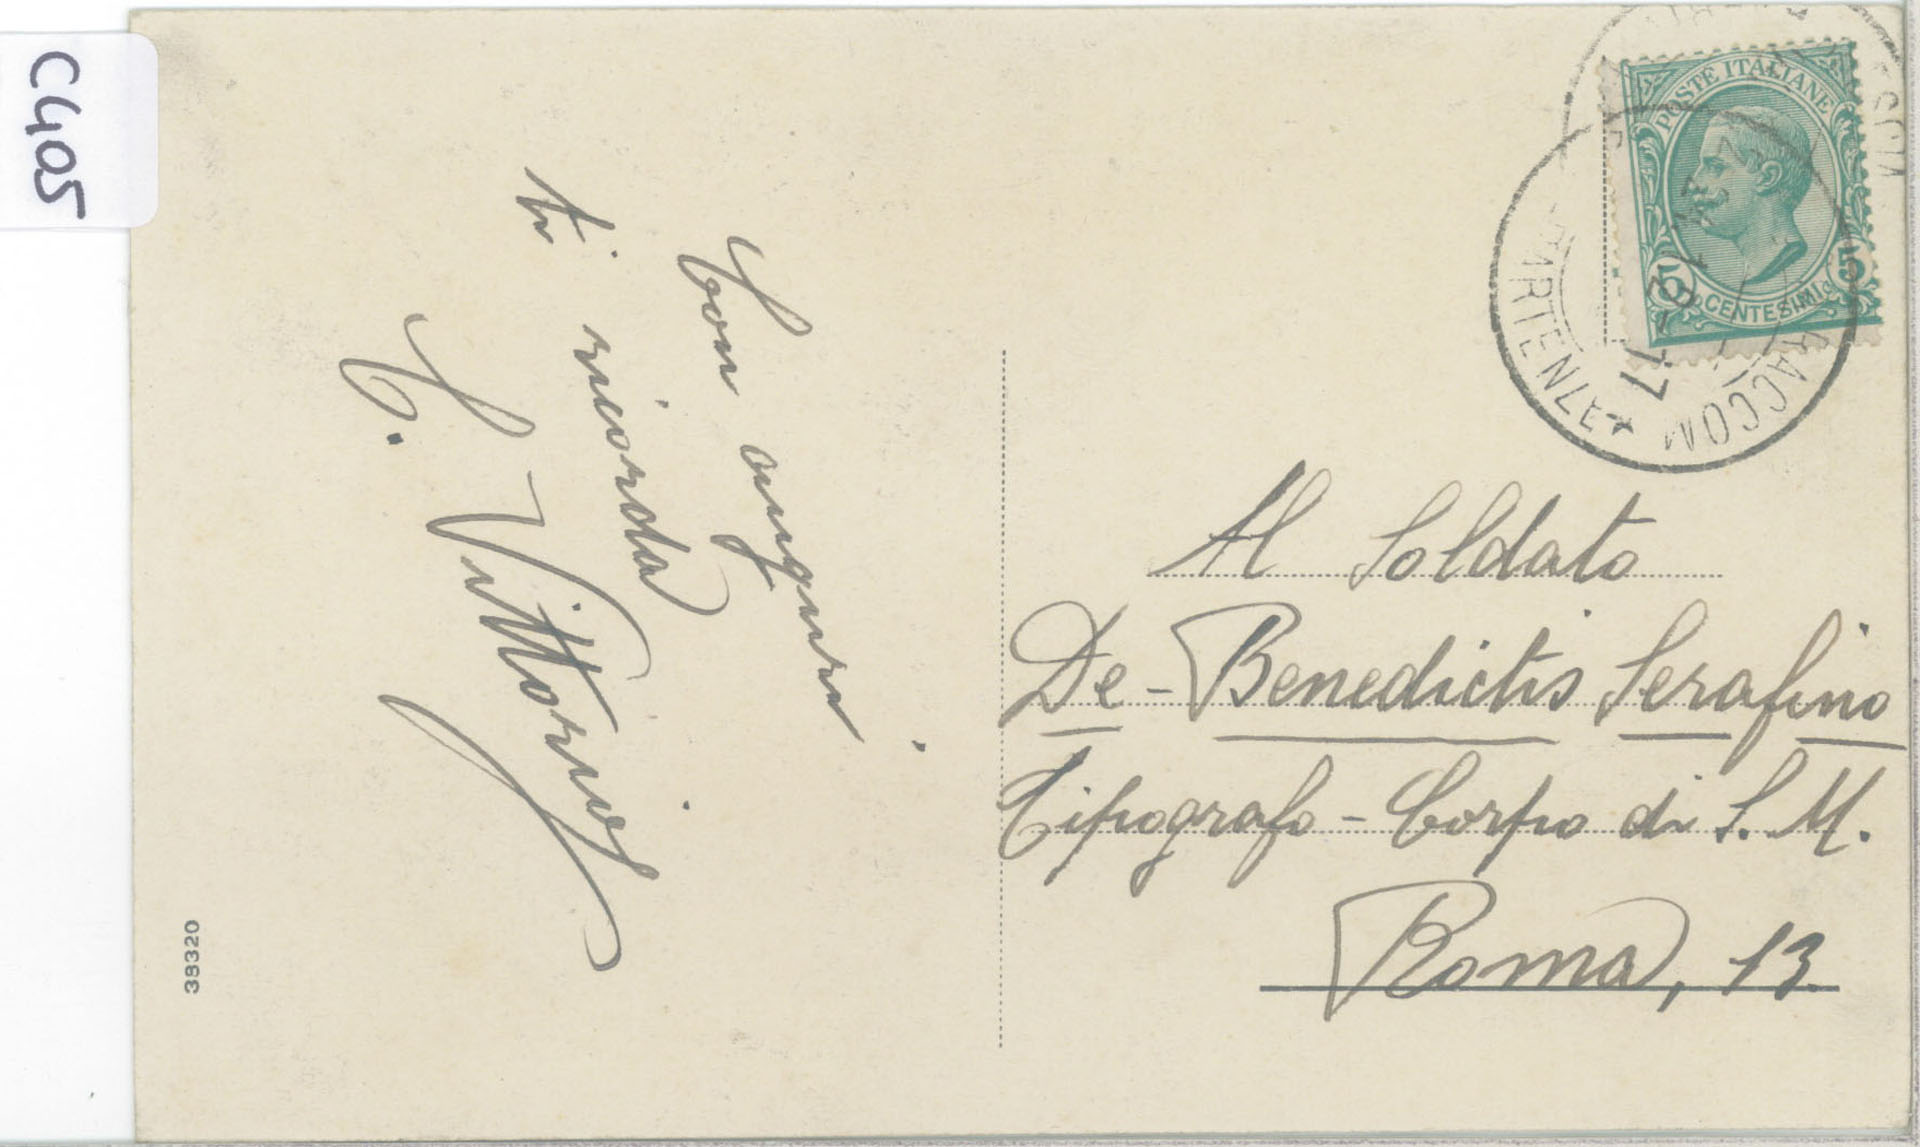 C405
Con auguri
ti ricorda
C. Vittorioz
38320
POSTE ITALIANE
5 CENTESIMI 5
RACCOM
ARTENZE
17
Al Soldato
De-Benedictis Serafino
Tipografo - Corpo di S. M.
Roma, 13